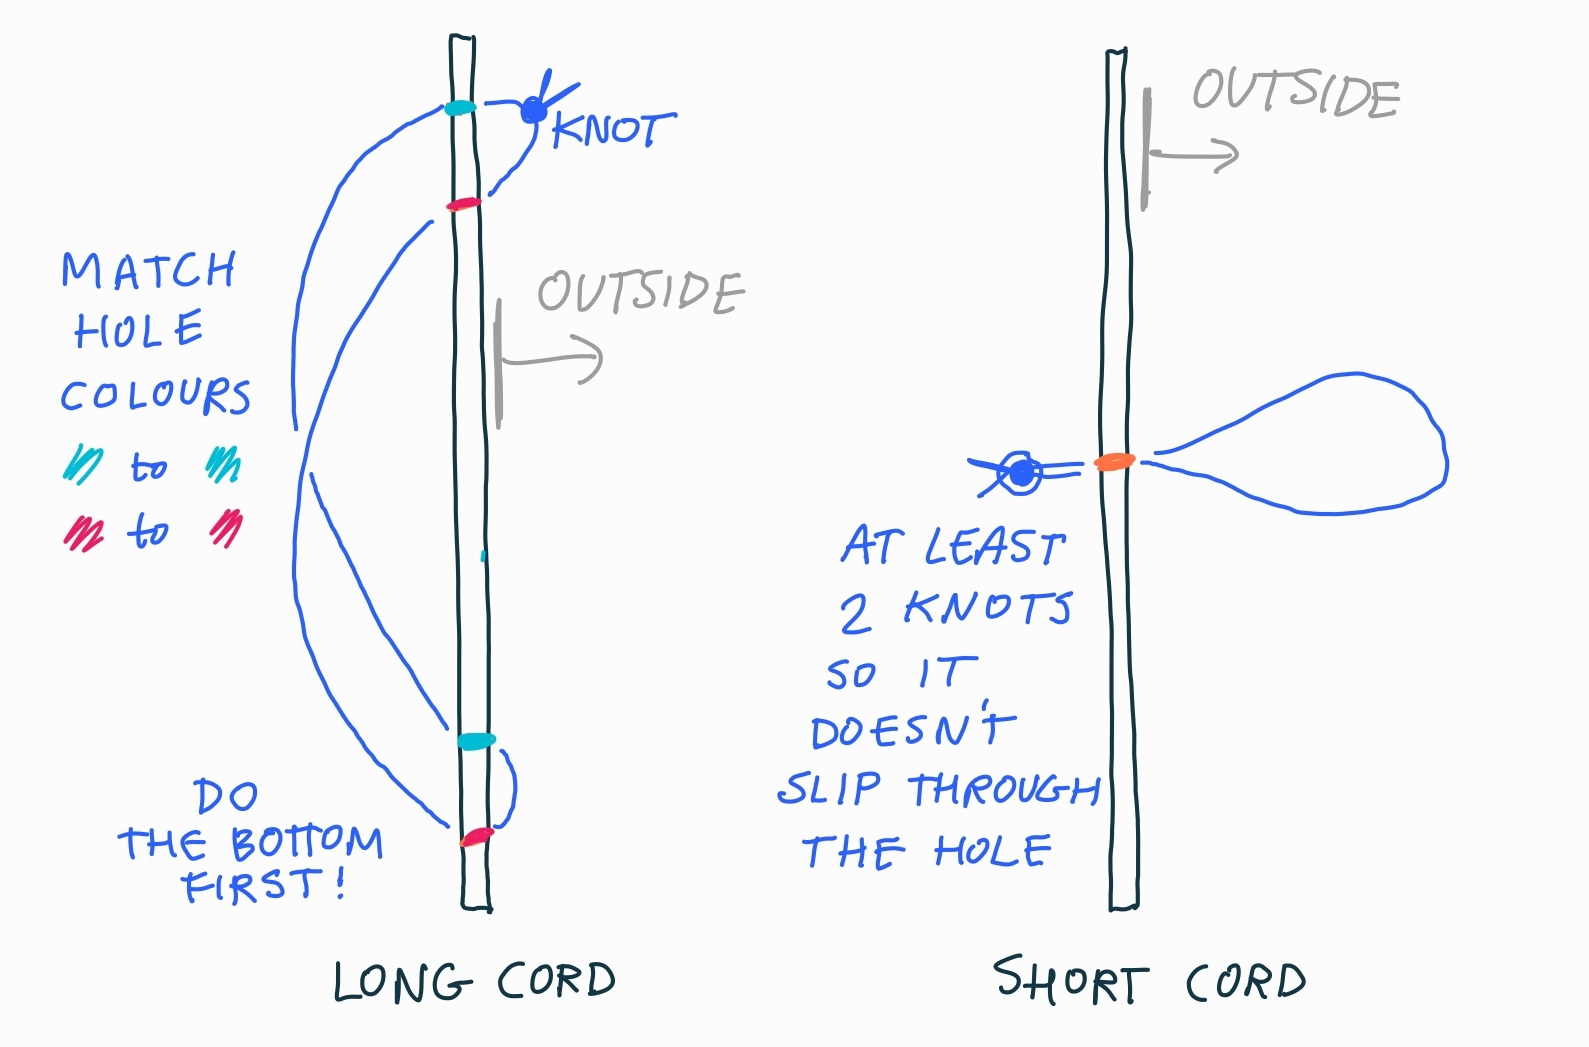 KNOT
OUTSIDE
MATCH
HOLE
COLOURS
to
to
DO
THE BOTTOM
FIRST!
LONG CORD
OUTSIDE
AT LEAST
2 KNOTS
SO IT
DOESN'T
SLIP THROUGH
THE HOLE
SHORT CORD